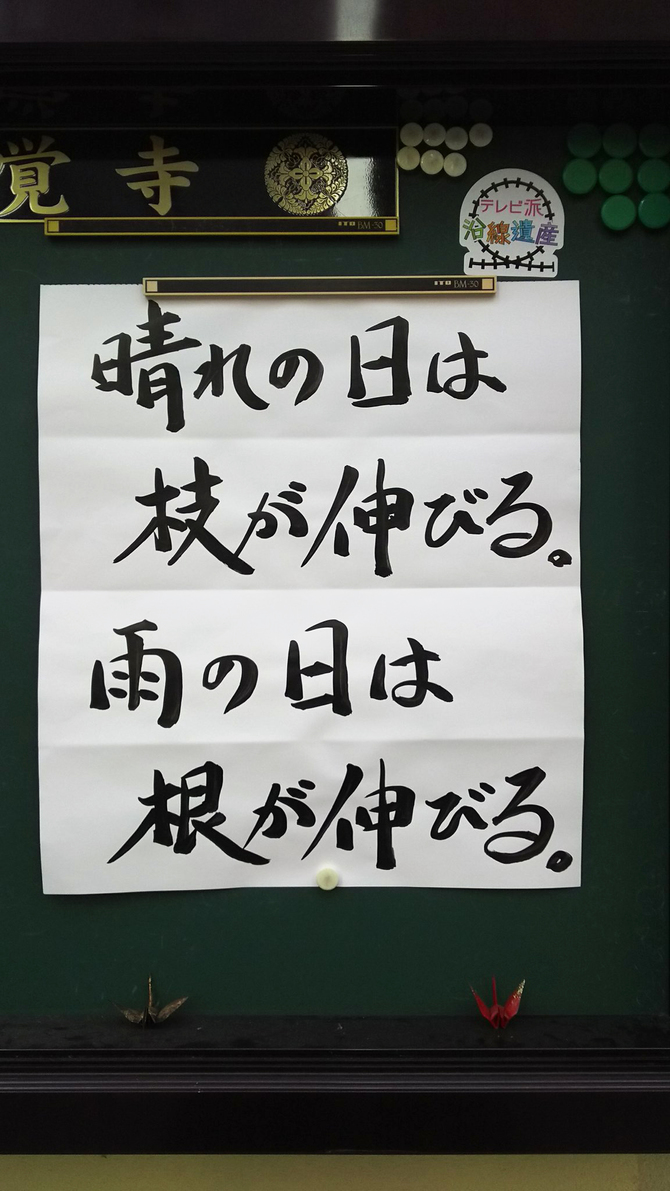 覚寺
ITO BM-30
テレビ派
沿線遺産
ITO BM-30
晴れの日は
枝が伸びる。
雨の日は
根が伸びる。